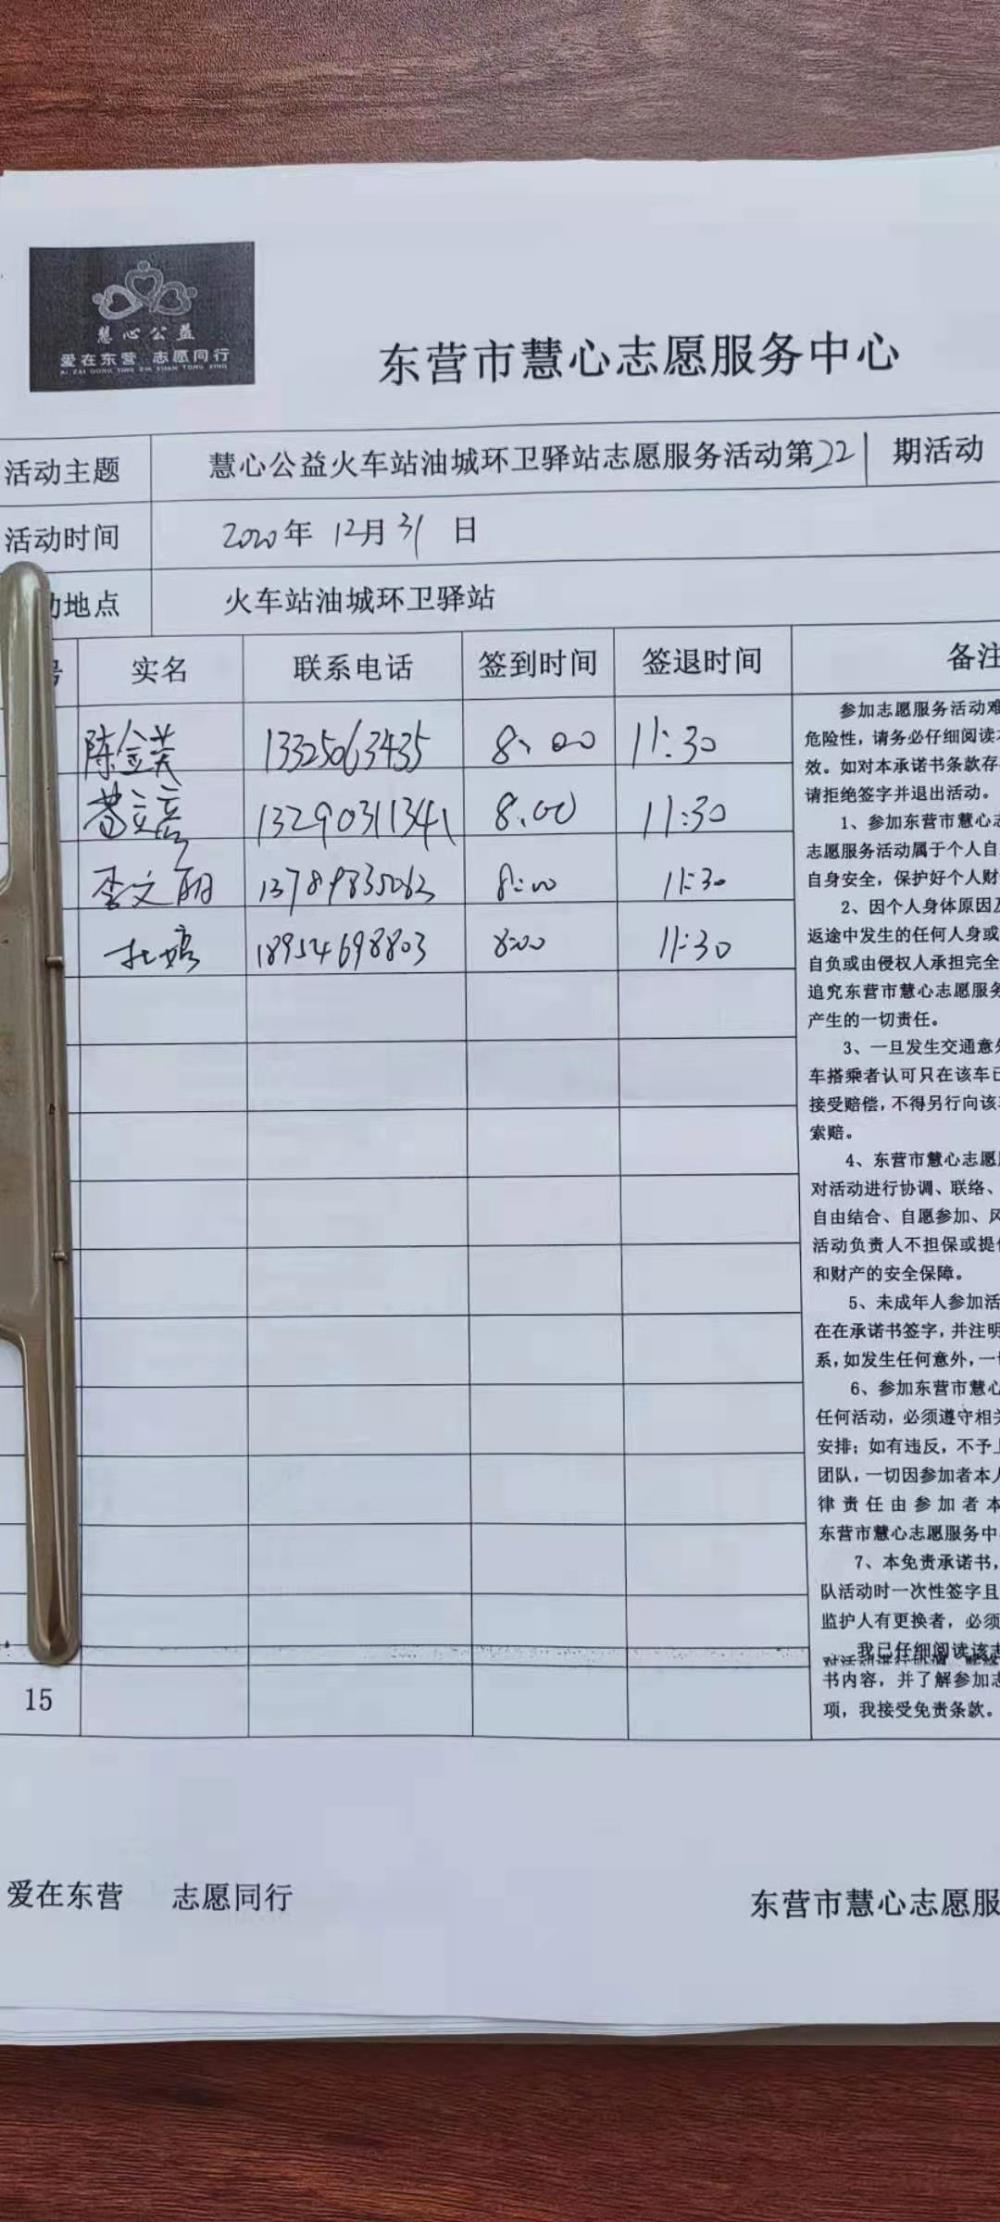 慧心公益
爱在东营 志愿同行
AI ZAI DONG YING ZHI YUAN TONG XING
东营市慧心志愿服务中心
活动主题 慧心公益火车站油城环卫驿站志愿服务活动第221期活动
活动时间 2020年 12月31日
动地点 火车站油城环卫驿站
号 实名 联系电话 签到时间 签退时间 备注
陈金美 13325063435 8:00 11:30
13290311341 8:00 11:30
李文丽 13789835063 8:00 11:30
杜娟 18954698803 8:00 11:30
参加志愿服务活动难
危险性，请务必仔细阅读本
效。如对本承诺书条款存
请拒绝签字并退出活动。
1、参加东营市慧心志
志愿服务活动属于个人自
自身安全，保护好个人财
2、因个人身体原因及
返途中发生的任何人身或
自负或由侵权人承担完全
追究东营市慧心志愿服务
产生的一切责任。
3、一旦发生交通意外
车搭乘者认可只在该车已
接受赔偿，不得另行向该车
索赔。
4、东营市慧心志愿服
对活动进行协调、联络、
自由结合、自愿参加、风
活动负责人不担保或提供
和财产的安全保障。
5、未成年人参加活
在在承诺书签字，并注明
系，如发生任何意外，一切
6、参加东营市慧心
任何活动，必须遵守相关
安排；如有违反，不予上
团队，一切因参加者本人
律责任由参加者本
东营市慧心志愿服务中
7、本免责承诺书，
队活动时一次性签字且
监护人有更换者，必须
我已仔细阅读该志
书内容，并了解参加志
项，我接受免责条款。
15
爱在东营 志愿同行 东营市慧心志愿服